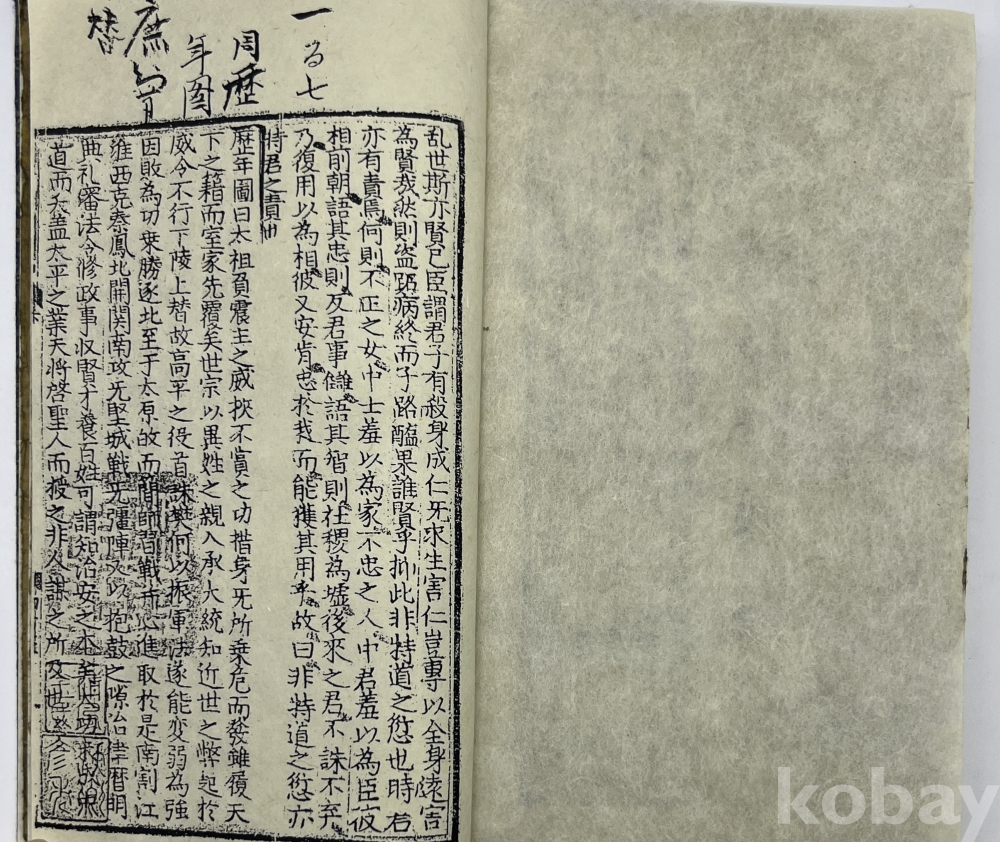 一ろ七
周歷
年图
替
乱世斯亦賢已臣謂君子有殺身成仁无求生害仁豈専以全身遠害
為賢㢤然則盗跖病終而子路醢果誰賢乎抑此非特道之愆也時君
亦有責焉何則不正之女中士羞以為家不忠之人中君羞以為臣彼
相前朝語其忠則反君事讎語其智則社稷為墟後來之君不誅不弃
乃復用以為相彼又安肯忠於我而能獲其用乎故曰非特道之愆亦
時君之責也
歷年圖曰太祖負震主之威挾不賞之功措身无所乗危而發雖履天
下之籍而室家先覆矣世宗以異姓之親入承大統知近世之弊起於
威令不行下陵上替故高平之役首誅樊何以振軍法遂能変弱為強
因敗為功乗勝逐北至于太原故而簡師習戰志進取於是南割江
淮西克秦鳳北開関南攻无堅城戰无彊陣又以抱鼓之隙治律暦明
典礼審法令修政事収賢才養百姓可謂知治安之本
道而夭盖太平之業天將啓聖人而授之非人謀之所及也
kobay